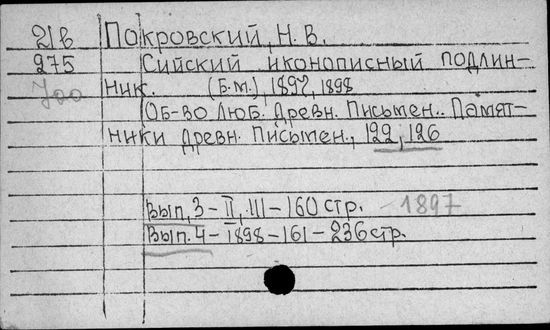 21в Покровский, Н. В.
275 Сийский иконописный подлин-
700 ник. (Б.м.), 1897, 1898
Об-во Люб. Древн. Письмен.. Памят-
ники древн. Письмен., 122, 126
Вып, 3 – II, III – 160 стр. – 1897
Вып. 4 – 1898 – 161 – 236 стр.